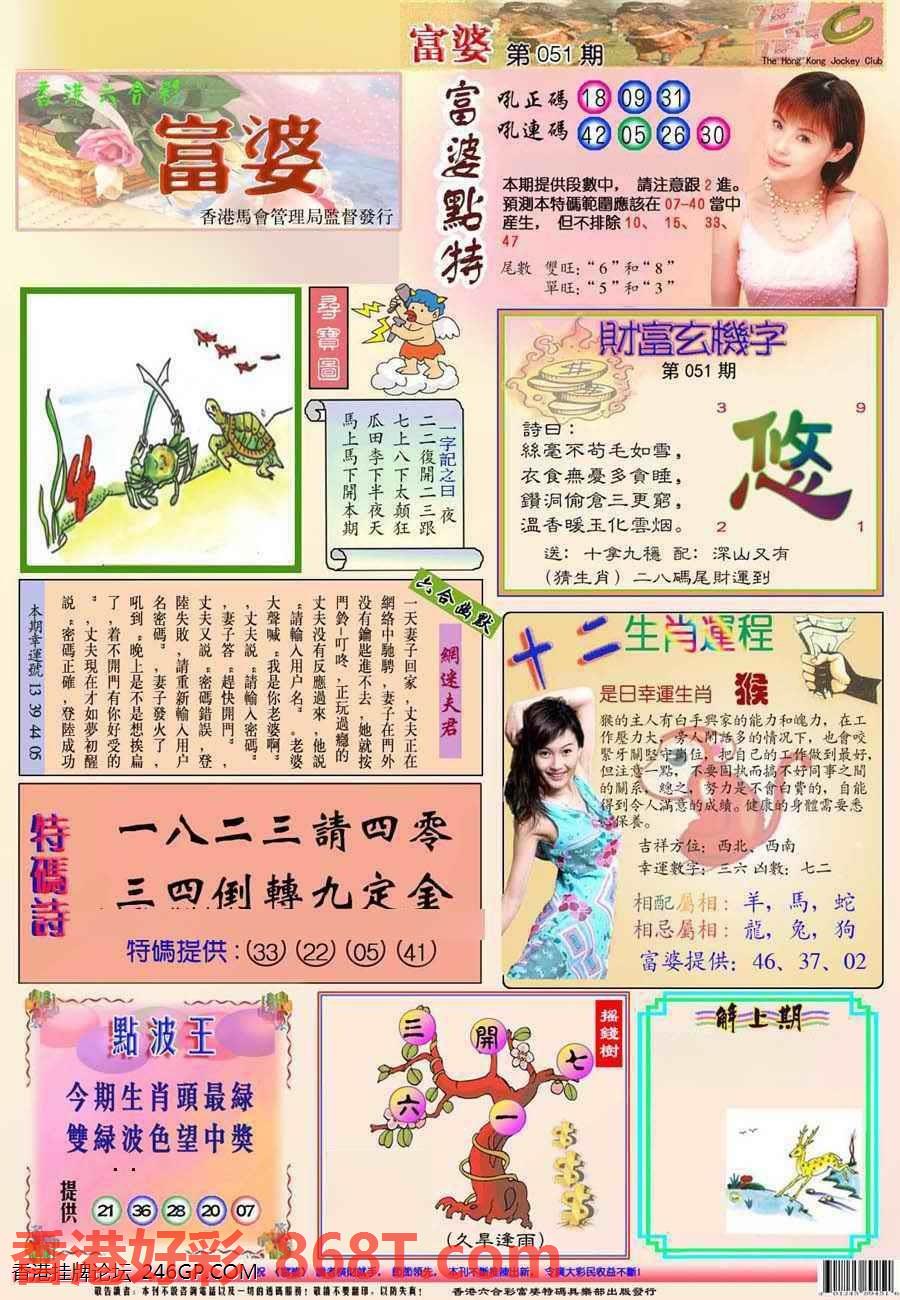 富婆 第051期
The Hong Kong Jockey Club
香港六合彩
富婆
香港馬會管理局監督發行
富婆點特
吼正碼 18 09 31
吼連碼 42 05 26 30
本期提供段數中， 請注意跟2進。
預測本特碼範圍應該在07-40當中
産生， 但不排除10、 15、 33、
47
尾數 雙旺：“6”和“8”
單旺：“5”和“3”
尋寶圖
一字記之曰 夜
二二復開二三跟
七上八下太顛狂
瓜田李下半夜天
馬上馬下開本期
財富玄機字
第051期
3 9
悠
2 1
詩曰：
絲毫不苟毛如雪，
衣食無憂多貪睡，
鑽洞偷倉三更窮，
温香暖玉化雲烟。
送：十拿九穩 配：深山又有
（猜生肖）二八碼尾財運到
六合幽默
網迷夫君
一天妻子回家，丈夫正在
網絡中馳騁，妻子在門外
没有鑰匙進不去，她就按
門鈴-叮咚，正玩過癮的
丈夫没有反應過來，他説
“請輸入用户名” 老婆
大聲喊“我是你老婆啊”
，丈夫説“請輸入密碼”
，妻子答“趕快開門”，
丈夫又説“密碼錯誤，登
陸失敗，請重新輸入用户
名密碼。”妻子發火了，
吼到“晚上是不是不想挨扁
了，着不開門有你好受的
”，丈夫現在才如夢初醒
説“密碼正確，登陸成功
本期幸運號 13 39 44 05
十二生肖運程
是日幸運生肖 猴
猴的主人有白手興家的能力和魄力，在工
作壓力大，旁人閑話多的情况下，也會咬
緊牙關堅守崗位，把自己的工作做到最好，
但注意一點，不要固執而搞不好同事之間
的關系，總之，努力是不會白費的，自能
得到令人滿意的成績。健康的身體需要悉
心保養。
吉祥方位：西北、西南
幸運數字：三六 凶數：七二
相配屬相：羊，馬，蛇
相忌屬相：龍，兔，狗
富婆提供：46、37、02
特碼詩
一八二三請四零
三四倒轉九定金
特碼提供：33 22 05 41
點波王
今期生肖頭最緑
雙緑波色望中獎
提供 21 36 28 20 07
摇錢樹
三 開 七
六 一
（久旱逢雨）
解上期
香港好彩 868T.com
香港挂牌论坛 246GP.COM
祝 《富婆》 讀者橫財就手， 節節領先，本刊不斷推陳出新， 令廣大彩民收益不斷！
敬告讀者：本刊不設咨詢電話以及一切的透碼服務！敬請不要翻印，以防失真！
香港六合彩富婆特碼俱樂部出版發行